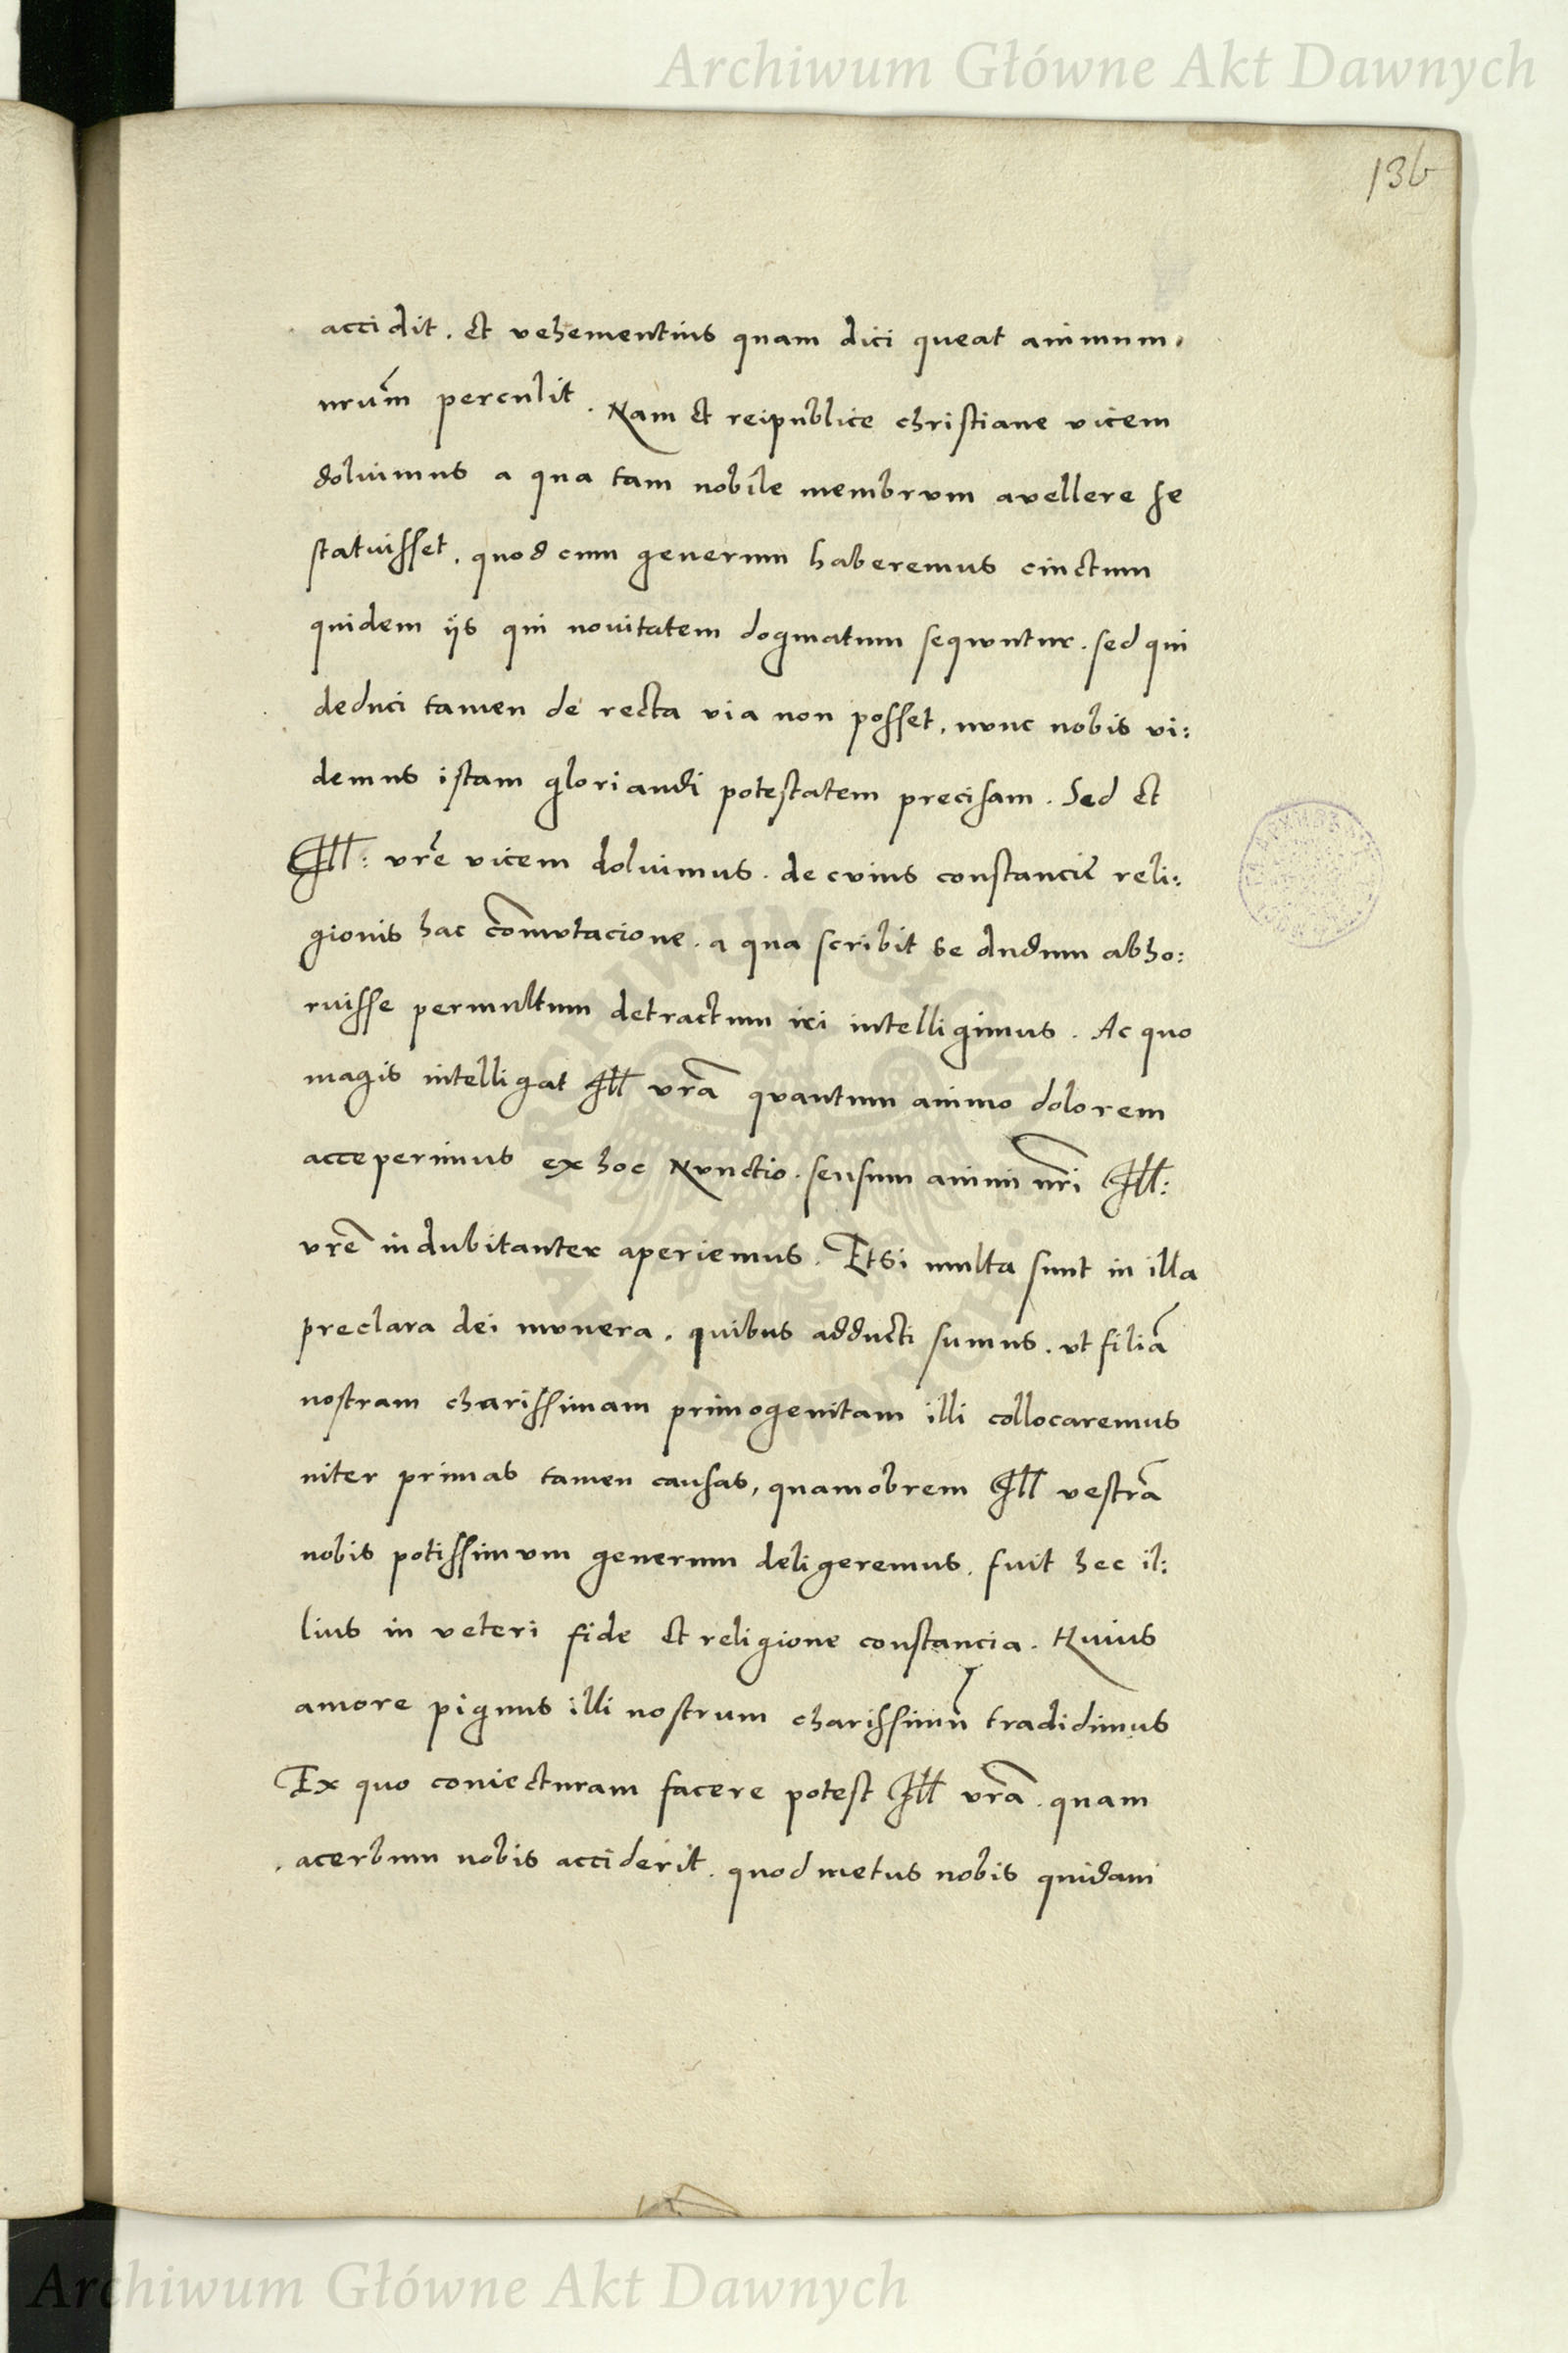 Archiwum Główne Akt Dawnych
136
accidit. et vehementius quam dici queat animum
nrũm perculit. Nam et reipublice christiane vicem
doluimus a qua tam nobile membrum avellere se
statuisset, quod cum generum haberemus cinctum
quidem ijs qui novitatem dogmatum sequuntur. sed qui
deduci tamen de recta via non posset, nunc nobis vi:
demus istam gloriandi potestatem precisam. Sed et
Ill: vrẽ vicem doluimus. de cuius constancie reli:
gionis hac com̃utacione. a qua scribit se dudum abho:
ruisse permultum detractum iri intelligimus. Ac quo
magis intelligat Ill vrã quantum animo dolorem
acceperimus ex hoc Nunctio. sensum animi nr̃i Ill:
vrẽ indubitanter aperiemus. Etsi multa sunt in illa
preclara dei munera, quibus adducti sumus, ut filiã
nostram charissimam primogenitam illi collocaremus
niter primas tamen causas, quamobrem Ill vestrã
nobis potissimum generum deligeremus, fuit hec il:
lius in veteri fide et religione constancia. Huius
amore pignus illi nostrum charissimũ tradidimus
Ex quo coniecturam facere potest Ill vrã. quam
acerbum nobis acciderit. quod metus nobis quidam
ARCHIWUM GŁÓWNE AKT DAWNYCH
Archiwum Główne Akt Dawnych